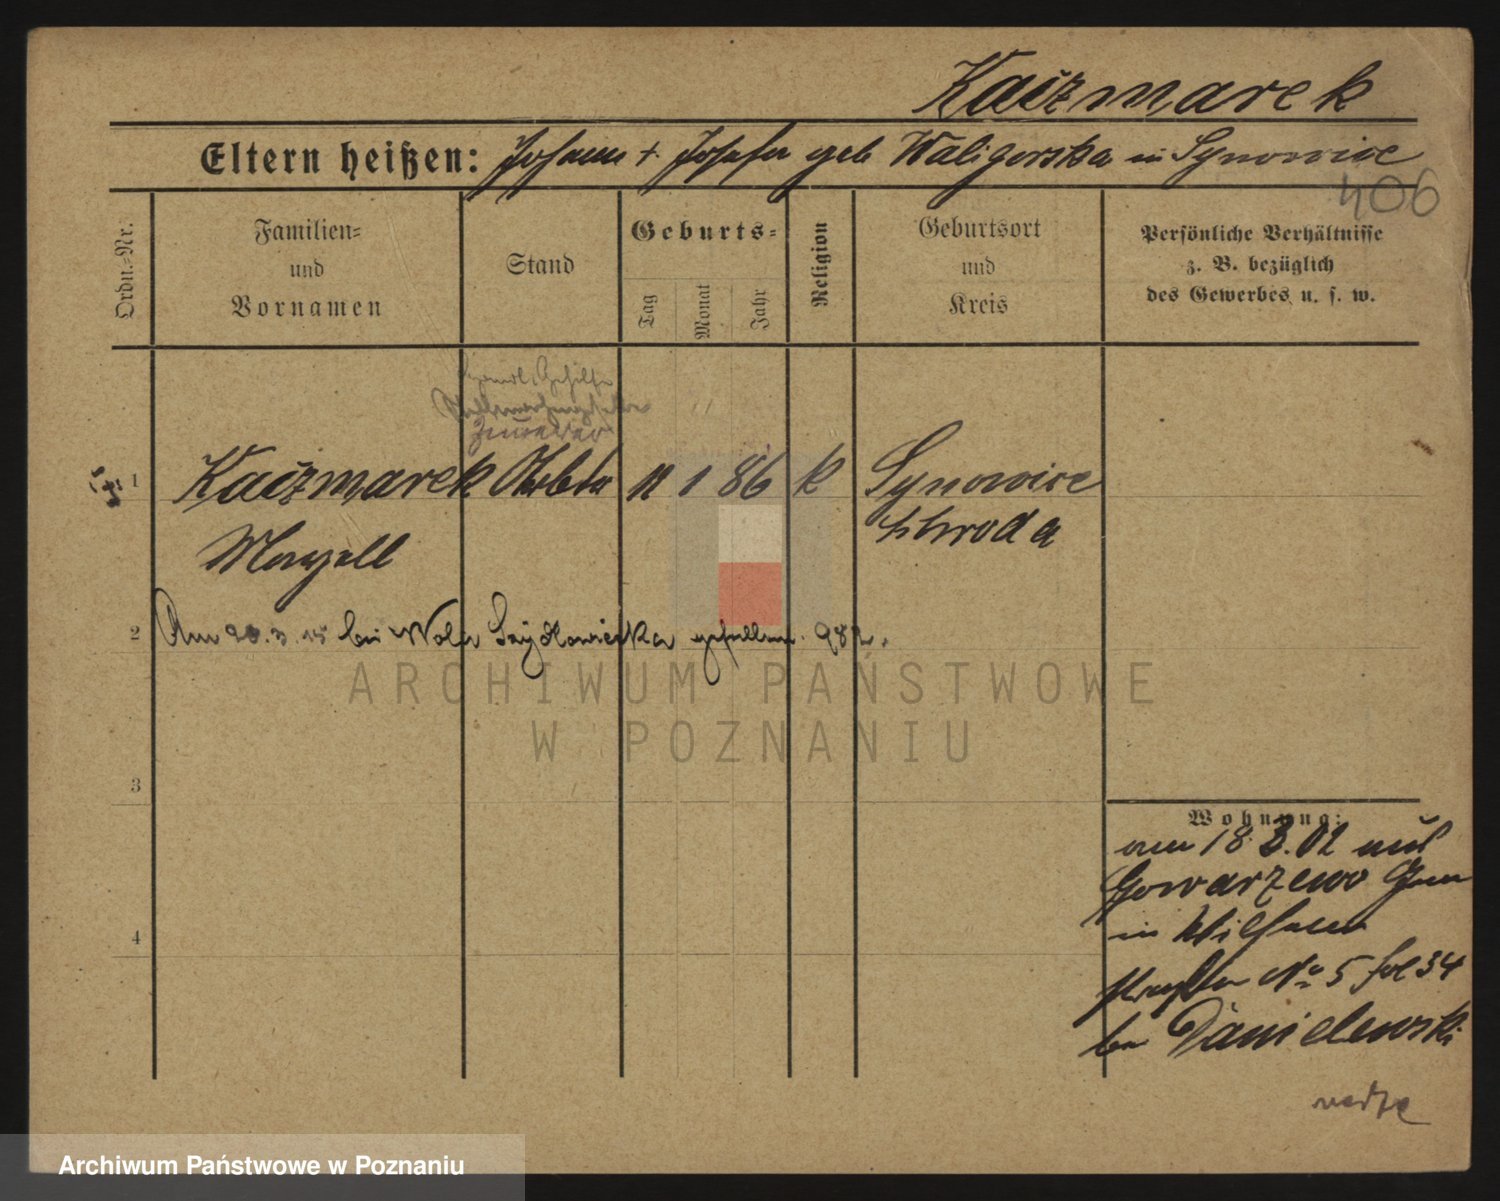 Kaczmarek
Eltern heißen: Johann + Josefa geb Waligorska in Synowice
406
Ordn.-Nr.
Familien- und Vornamen
Stand
Geburts-
Tag
Monat
Jahr
Religion
Geburtsort und Kreis
Persönliche Verhältnisse z. B. bezüglich des Gewerbes u. s. w.
1 Kaczmarek 11 1 86 k Synowice
Schroda
2 Am 3. 15 bei Wola Szydlowiecka gefallen. 982.
ARCHIWUM PAŃSTWOWE
W POZNANIU
3
4
Wohnung:
am 18.3.02 aus
Gowarzewo
in Wilhelm
straße No 5 bei
bei Danielewski
Archiwum Państwowe w Poznaniu